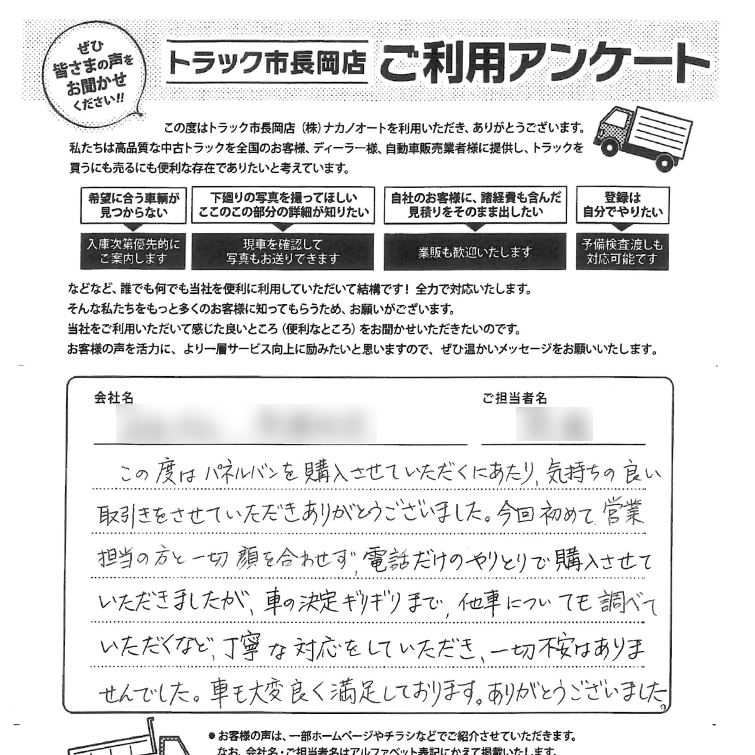 ぜひ
皆さまの声を
お聞かせ
ください!!
トラック市長岡店 ご利用アンケート
この度はトラック市長岡店(株)ナカノオートを利用いただき、ありがとうございます。
私たちは高品質な中古トラックを全国のお客様、ディーラー様、自動車販売業者様に提供し、トラックを
買うにも売るにも便利な存在でありたいと考えています。
希望に合う車輌が
見つからない
入庫次第優先的に
ご案内します
下廻りの写真を撮ってほしい
ここのこの部分の詳細が知りたい
現車を確認して
写真もお送りできます
自社のお客様に、諸経費も含んだ
見積りをそのまま出したい
業販も歓迎いたします
登録は
自分でやりたい
予備検査渡しも
対応可能です
などなど、誰でも何でも当社を便利に利用していただいて結構です!全力で対応いたします。
そんな私たちをもっと多くのお客様に知ってもらうため、お願いがございます。
当社をご利用いただいて感じた良いところ(便利なところ)をお聞かせいただきたいのです。
お客様の声を活力に、より一層サービス向上に励みたいと思いますので、ぜひ温かいメッセージをお願いいたします。
会社名 ご担当者名
この度はパネルバンを購入させていただくにあたり、気持ちの良い
取引きをさせていただきありがとうございました。今回初めて営業
担当の方と一切顔を合わせず、電話だけのやりとりで購入させて
いただきましたが、車の決定ギリギリまで、他車についても調べて
いただくなど、丁寧な対応をしていただき、一切不安はありま
せんでした。車も大変良く満足しております。ありがとうございました。
●お客様の声は、一部ホームページやチラシなどでご紹介させていただきます。
なお、会社名・ご担当者名はアルファベット表記にかえて掲載いたします。